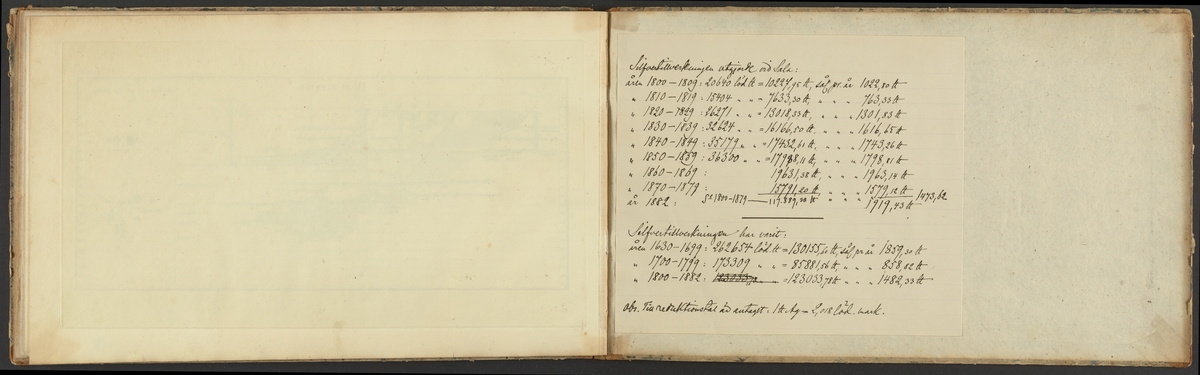 Silfvertillverkningen utgjorde vid Sala:
åren 1800–1809: 20640 löd. ℔ = 10227,95 ℔, såled. pr. år 1022,80 ℔
„ 1810–1819: 15404 „ „ = 7633,30 ℔, „ „ 763,33 ℔
„ 1820–1829: 26271 „ „ = 13018,33 ℔, „ „ 1301,83 ℔
„ 1830–1839: 32624 „ „ = 16166,50 ℔, „ „ 1616,65 ℔
„ 1840–1849: 35179 „ „ = 17432,61 ℔, „ „ 1743,26 ℔
„ 1850–1859: 36300 „ „ = 17988,11 ℔, „ „ 1798,81 ℔
„ 1860–1869: 19631,38 ℔, „ „ 1963,14 ℔
„ 1870–1879: 15791,20 ℔ „ „ 1579,12 ℔
år 1882: 1800–1879 — 117.889,38 ℔ „ „ 1919,43 ℔ 1473,62
Silfvertillverkningen har varit:
åren 1630–1699: 262654 löd. ℔ = 130155,60 ℔, såled. pr år 1859,30 ℔
„ 1700–1799: 173309 „ „ = 85881,56 ℔, „ „ 858,82 ℔
„ 1800–1882: = 123033,78 ℔ „ „ 1482,33 ℔
obs. Till reduktionstal är antaget: 1 ℔ Ag = 2,018 löd. mark.